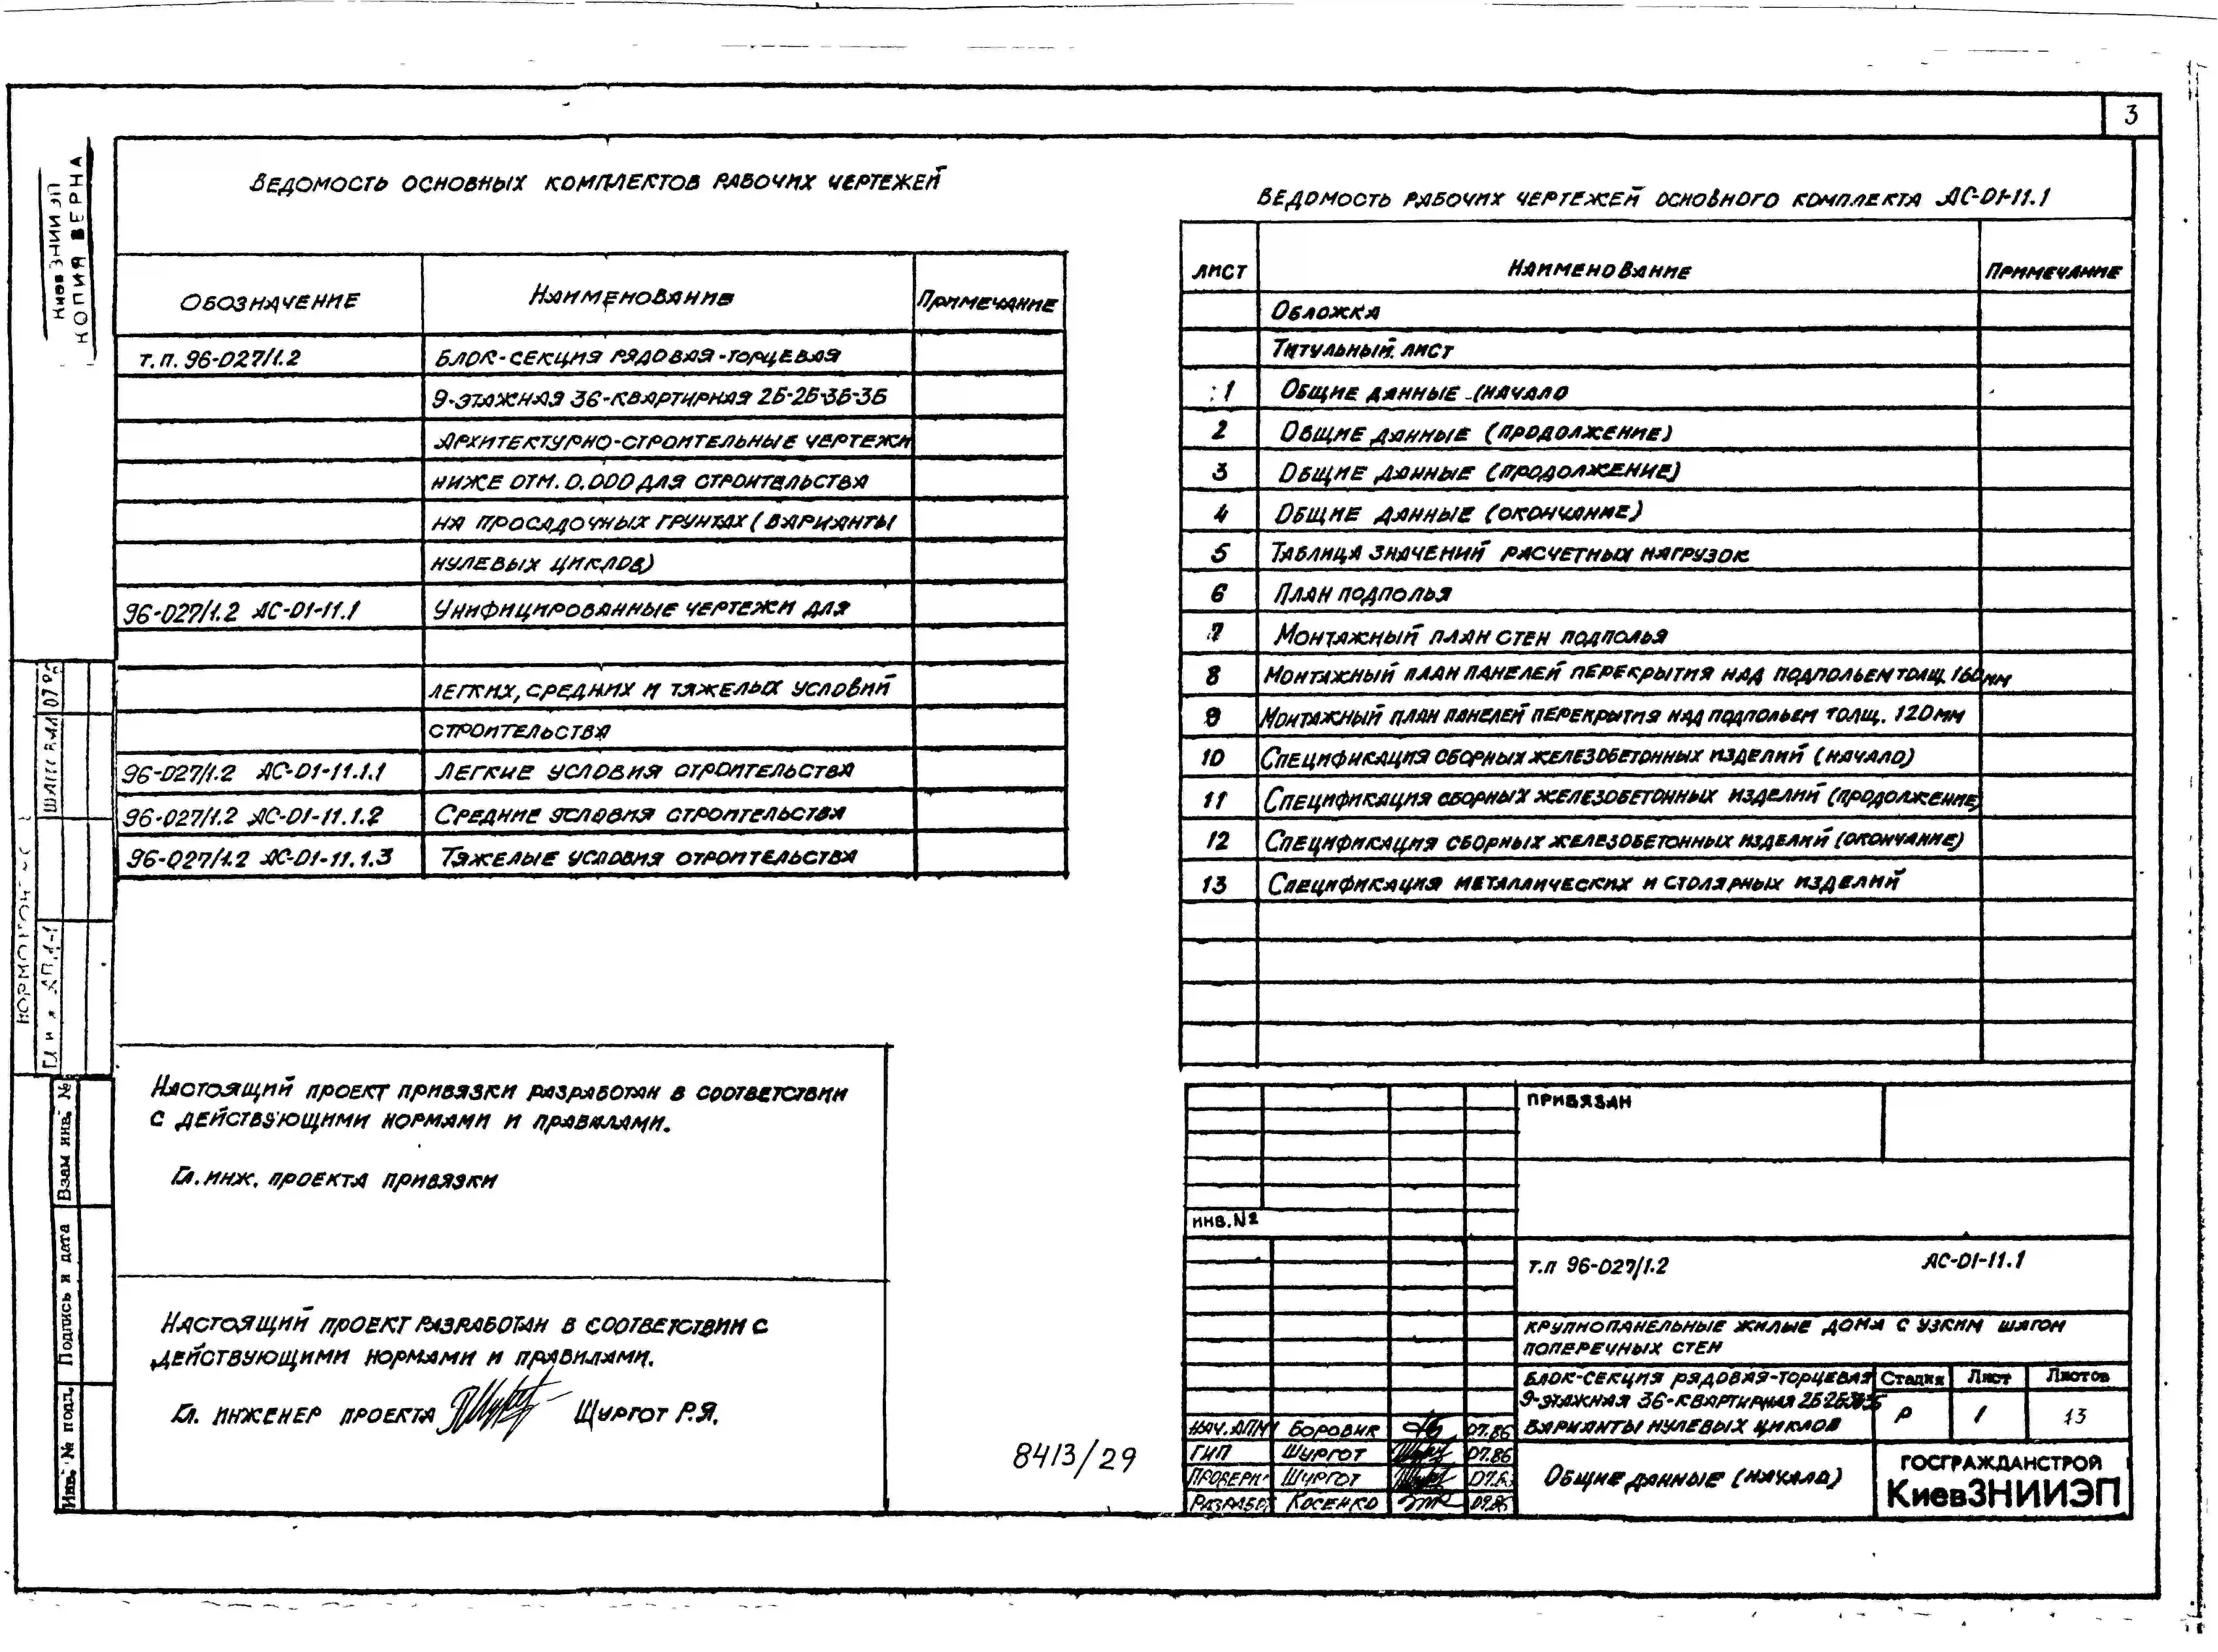 3
КиевЗНИИЭП
КОПИЯ ВЕРНА
Ведомость основных комплектов рабочих чертежей
Обозначение Наименование Примечание
т.п. 96-027/1.2 Блок-секция рядовая-торцевая
9-этажная 36-квартирная 2Б-2Б-3Б-3Б
Архитектурно-строительные чертежи
ниже отм. 0.000 для строительства
на просадочных грунтах (варианты
нулевых циклов)
96-027/1.2 АС-01-11.1 Унифицированные чертежи для
легких, средних и тяжелых условий
строительства
96-027/1.2 АС-01-11.1.1 Легкие условия строительства
96-027/1.2 АС-01-11.1.2 Средние условия строительства
96-027/1.2 АС-01-11.1.3 Тяжелые условия строительства
Ведомость рабочих чертежей основного комплекта АС-01-11.1
лист Наименование Примечание
Обложка
Титульный лист
1 Общие данные (начало
2 Общие данные (продолжение)
3 Общие данные (продолжение)
4 Общие данные (окончание)
5 Таблица значений расчетных нагрузок
6 План подполья
7 Монтажный план стен подполья
8 Монтажный план панелей перекрытия над подпольем толщ. 160мм
9 Монтажный план панелей перекрытия над подпольем толщ. 120мм
10 Спецификация сборных железобетонных изделий (начало)
11 Спецификация сборных железобетонных изделий (продолжение)
12 Спецификация сборных железобетонных изделий (окончание)
13 Спецификация металлических и столярных изделий
Настоящий проект привязки разработан в соответствии
с действующими нормами и правилами.
Гл. инж. проекта привязки
Настоящий проект разработан в соответствии с
действующими нормами и правилами.
Гл. инженер проекта Щургот Р.Я.
8413/29
Взам инв. №
Подпись и дата
Инв. № подл.
Привязан
инв. №
т.п 96-027/1.2 АС-01-11.1
Крупнопанельные жилые дома с узким шагом
поперечных стен
Блок-секция рядовая-торцевая
9-этажная 36-квартирная 2Б2Б3Б3Б
варианты нулевых циклов
Стадия Лист Листов
Р 1 13
Нач. АПМ Боровик 07.86
ГИП Щургот 07.86
Проверил Щургот 07.86
Разработ Косенко
Общие данные (начало)
ГОСГРАЖДАНСТРОЙ
КиевЗНИИЭП